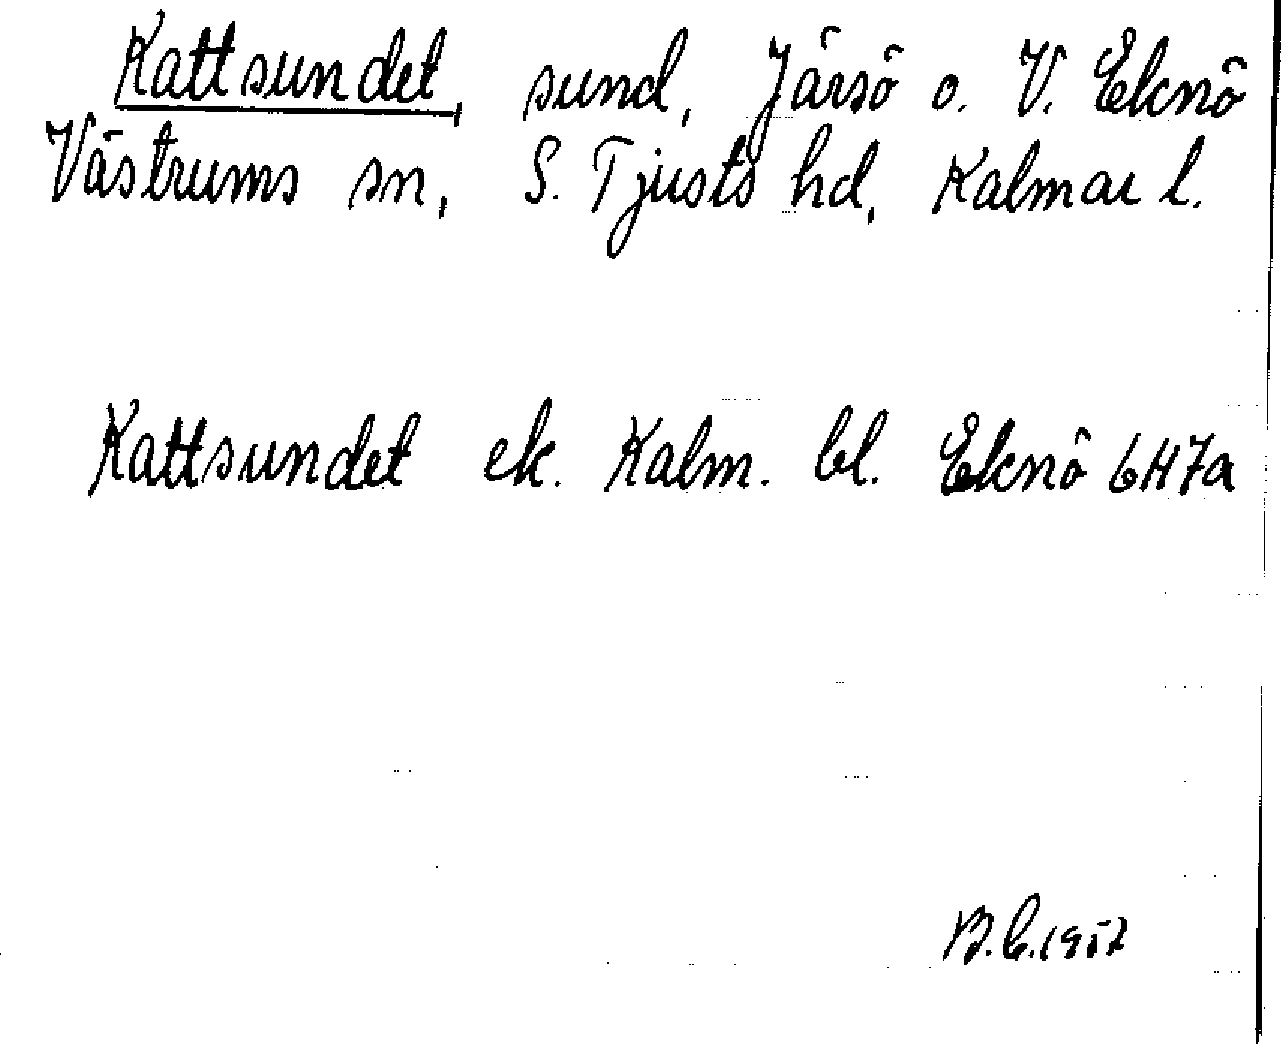 Kattsundet, sund, Järsö o. V. Eknö
Västrums sn, S. Tjusts hd, Kalmar l.
Kattsundet ek. Kalm. bl. Eknö 6H7a
B.C. 1957